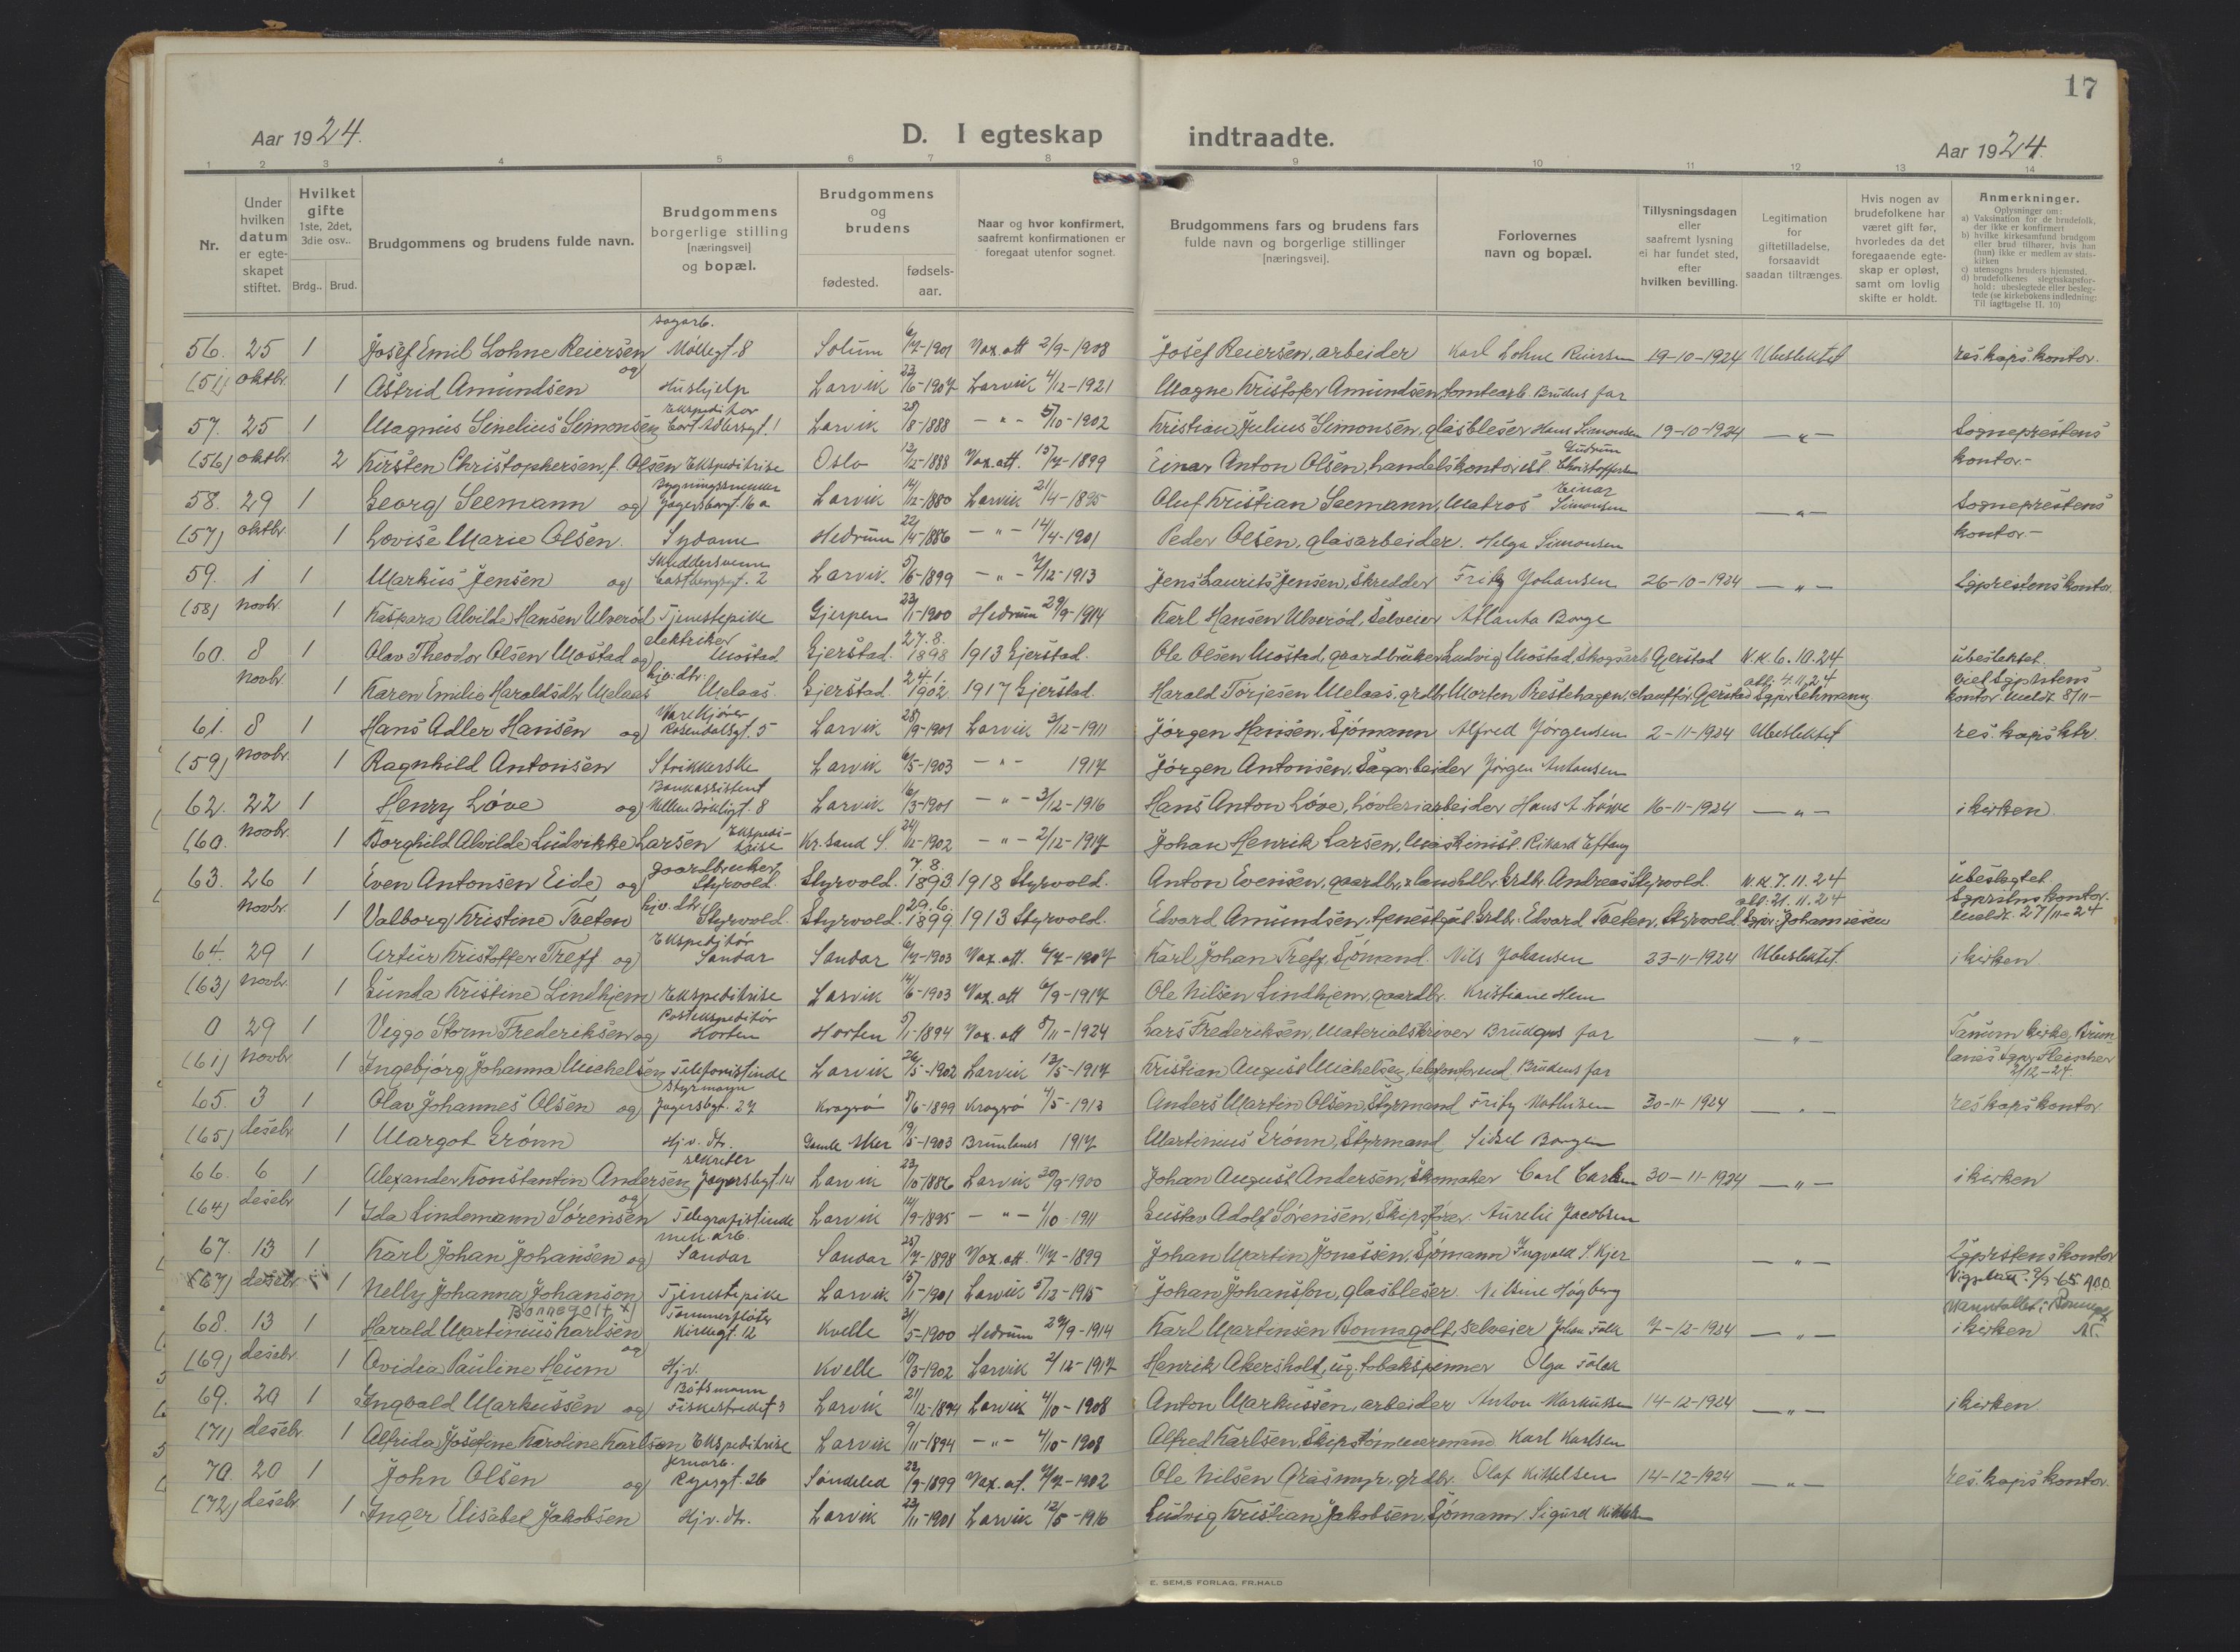 17
Aar 1924.
D. I egteskap indtraadte.
Aar 1924.
1 2 3 4 5 6 7 8 9 10 11 12 13 14
Nr.
Under hvilken datum er egteskapet stiftet.
Hvilket gifte 1ste, 2det, 3die osv.. Brdg.. Brud.
Brudgommens og brudens fulde navn.
Brudgommens borgerlige stilling [næringsvei] og bopæl.
Brudgommens og brudens fødested. fødselsaar.
Naar og hvor konfirmert, saafremt konfirmationen er foregaat utenfor sognet.
Brudgommens fars og brudens fars fulde navn og borgerlige stillinger [næringsvei].
Forlovernes navn og bopæl.
Tillysningsdagen eller saafremt lysning ei har fundet sted, efter hvilken bevilling.
Legitimation for giftetilladelse, forsaavidt saadan tiltrænges.
Hvis nogen av brudefolkene har været gift før, hvorledes da det foregaaende egteskap er opløst, samt om lovlig skifte er holdt.
Anmerkninger.
Oplysninger om:
a) Vaksination for de brudefolk, der ikke er konfirmert
b) hvilke kirkesamfund brudgom eller brud tilhører, hvis han (hun) ikke er medlem av statskirken
c) utensogns bruders hjemsted.
d) brudefolkenes slegtsskapsforhold: ubeslegtede eller beslegtede (se kirkebokens indledning: Til iagttagelse II. 10)
sagarb.
56. 25 1 Josef Emil Lohne Reiersen og Møllegt. 8 Solum 6/7-1901 Vax. att 2/9-1908 Josef Reiersen, arbeider Karl Lohne Reiersen 19-10-1924 Ubeslektet res. kaps kontor.
(51) oktbr. 1 Astrid Amundsen Hushjelp Larvik 23/6-1907 Larvik 4/12-1921 Magne Kristofer Amundsen, tomtearb. Brudens far
Ekspeditor
57. 25 1 Magnus Sinelius Simonsen Cort Adlersgt. 1 Larvik 28/8-1888 -"- 5/10-1902 Kristian Julius Simonsen, glasbleser Hans Simonsen 19-10-1924 -"- Sogneprestens
(56) oktbr. 2 Kirsten Christophersen, f. Olsen Ekspeditrise Oslo 13/12-1888 Vax. att. 15/7-1899 Einar Anton Olsen, handelskontorist Gudrun Christoffersen kontor.-
Bygningssnekker
58. 29 1 Georg Seemann og Jegersborgt. 16 a Larvik 14/12-1880 Larvik 21/4-1895 Oluf Kristian Seemann, Matros Einar Simonsen -"- Sogneprestens
(57) oktbr. 1 Lovise Marie Olsen. Sydame Hedrum 22/4-1886 -"- 14/4-1901 Peder Olsen, glasarbeider. Helga Simonsen kontor.-
Skreddersvenn
59. 1 1 Markus Jensen og 2 Larvik 5/6-1899 -"- 7/12-1913 Jens Laurits Jensen, Skredder Fritz Johansen 26-10-1924 -"- Sgprestens kontor.
(58) novbr. 1 Kaspara Alvilde Hansen Ulverød Tjenestepike Gjerpen 23/1-1900 Hedrum 29/9-1914 Karl Hansen Ulverød, Selveier Atlanta Borge
60. 8 1 Olav Theodor Olsen Mostad og elektriker Mostad Gjerstad. 27.8. 1898 1913 Gjerstad. Ole Olsen Mostad, gaardbruker Ludvig Mostad, Skogsarb. Gjerstad V.K. 6.10.24 ubeslektet.
novbr. 1 Karen Emilie Haraldsdtr. Melaas hjv. dtr. Melaas. Gjerstad 24.1. 1902 1917 Gjerstad. Harald Torjesen Melaas, grdbr. Morten Prestehagen, chauffør, Gjerstad att: 4.11.24 Sgpr. Lehmann viet Sgprstens kontor Meldt 8/11-
61. 8 1 Hans Adler Hansen og Vare kjører Rosendalsgt. 5 Larvik 28/9-1901 Larvik 3/12-1911 Jørgen Hansen, Sjømann Alfred Jørgensen 2-11-1924 Ubeslektet res. kaps ktr.
(59) novbr. 1 Ragnhild Antonsen Strikkerske Larvik 6/5-1903 -"- 1917 Jørgen Antonsen, Sagarbeider Jørgen Antonsen
Bankassistent
62. 22 1 Henry Løve og 8 Larvik 6/3-1901 -"- 3/12-1916 Hans Anton Løve, høvleriarbeider Hans A Løve 16-11-1924 -"- i kirken.
(60. novbr. 1 Borghild Alvilde Ludvikke Larsen Ekspeditrise Kr. Sand S. 24/12-1902 -"- 2/12-1917 Johan Henrik Larsen, Maskinist. Rikard Eftang
63. 26 1 Even Antonsen Eide og gaardbruker, Styrvold. Styrvold. 7.8. 1893 1918 Styrvold. Anton Evensen, gaardbr. & landhdlr. Grdbr. Andreas Styrvold. V.K. 7.11.24 ubeslegtet.
novbr. 1 Valborg Kristine Tveten hjv. dtr. Styrvold. Styrvold. 29.6. 1899 1913 Styrvold. Edvard Amundsen, Grdbr. Edvard Tveten, Styrvold. att: 21.11.24 Sgpr. Johannesen Sgprstns kontor. Meldt. 27/11-24
64. 29 1 Artur Kristoffer Treff og Ekspeditør Sandar Sandar 6/7-1903 Vax. att. 6/7-1907 Karl Johan Treff, Sjømand. Nils Johansen 23-11-1924 Ubeslektet. i kirken
(63) novbr. 1 Gunda Kristine Lindhjem Ekspeditrise Larvik 14/6-1903 Vax. att 6/9-1917 Ole Nilsen Lindhjem, gaardbr. Kristiane Hem
0 29 1 Viggo Storm Frederiksen og Postekspeditør Horten Horten 5/1-1894 Vax. att 8/11-1924 Lars Frederiksen, Materialskriver Brudgs far -"- Tanum kirke, Brun-
(61) novbr. 1 Ingebjørg Johanna Michelsen Telefonistinde Larvik 26/5-1902 Larvik 13/5-1917 Kristian August Michelsen, Brudens far lanes Sgpr. Fleischer 2/12-24.
65. 3 1 Olav Johannes Olsen og Styrmann Jegersbgt. 27 Kragerø 8/6-1899 Kragerø 4/5-1913 Anders Martin Olsen, Styrmand Fritz Mathisen 30-11-1924 -"- res kaps kontor
(65) desebr 1 Margot Grønn Hj. v. dtr. Gamle Aker 19/5-1903 Brunlanes 1917 Martinius Grønn, Styrmand Sidsel Borgen
66. 6 1 Alexander Konstantin Andersen og Jegersbgt. 14 Larvik 23/10-1886 Larvik 30/9-1900 Johan August Andersen, Skomaker Carl Carlsen 30-11-1924 -"- i kirken
(64) desebr 1 Ida Lindemann Sørensen Telegrafistinde Larvik 14/9-1895 -"- 1/10-1911 Gustav Adolf Sørensen, Skipsfører. Aurelie Jacobsen
67. 13 1 Karl Johan Johansen og mek. arb. Sandar Sandar 25/7-1898 Vax. att. 11/7-1899 Johan Martin Jonassen, Sjømann Ingvald S. Kjær -"- Sgprstens kontor
(67) desebr 1 Nelly Johanna Johanson Tjenestepike Larvik 15/1-1901 Larvik 5/12-1915 Johan Johansson, glasbleser. Nilsine Høgberg
Bonnegolt x)
68. 13 1 Harald Martinius Karlsen og Tømmerfløter Kirkegt. 12 Kvelle 31/5-1900 Hedrum 29/9-1914 Karl Martinsen Bonnegolt, selveier Johan Falk 7-12-1924 -"- i kirken
(69) desebr 1 Ovidia Pauline Heum Hjv. Kvelle 10/3-1902 Larvik 2/12-1917 Henrik Akersholt, ug. tobakspinner Olga Falck
69. 20 1 Ingvald Markussen og Båtsmann Fiskestredet 3 Larvik 21/12-1894 Larvik 4/10-1908 Anton Markussen, arbeider Anton Markussen 14-12-1924 -"- i kirken
(71) desebr 1 Alfrida Josefine Karoline Karlsen Ekspeditrise Larvik 9/11-1894 -"- 4/10-1908 Alfred Karlsen, Skipstømmermand. Karl Karlsen
70. 20 1 John Olsen og jernarb. Ryesgt. 26 Søndeled 22/9-1899 Vax. at. 4/7-1902 Ole Nilsen Græsmyr, grdbr. Olaf Kittelsen 14-12-1924 -"- res. kaps kontor.
(72) desebr 1 Inger Elisabet Jakobsen Hj. v. dtr. Larvik 23/11-1901 Larvik 12/5-1916 Ludvig Kristian Jakobsen, Sjømann Sigurd Kittelsen
E. SEM,S FORLAG, FR.HALD